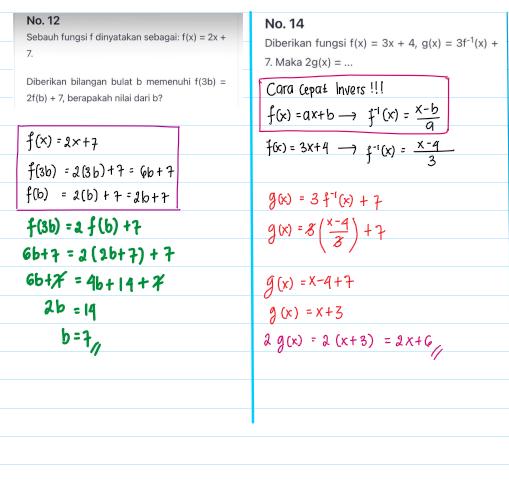 No. 12
Sebauh fungsi f dinyatakan sebagai: f(x) = 2x +
7.
Diberikan bilangan bulat b memenuhi f(3b) =
2f(b) + 7, berapakah nilai dari b?
f(x) = 2x+7
f(3b) = 2(3b)+7 = 6b+7
f(b) = 2(b)+7 = 2b+7
f(3b) = 2 f(b) +7
6b+7 = 2(2b+7)+7
6b+7 = 4b+14+7
2b = 14
b=7//
No. 14
Diberikan fungsi f(x) = 3x + 4, g(x) = 3f⁻¹(x) +
7. Maka 2g(x) = ...
Cara Cepat Invers !!!
f(x) = ax+b → f⁻¹(x) = (x-b)/a
f(x) = 3x+4 → f⁻¹(x) = (x-4)/3
g(x) = 3 f⁻¹(x) + 7
g(x) = 3((x-4)/3) +7
g(x) = x-4+7
g(x) = x+3
2 g(x) = 2 (x+3) = 2x+6//